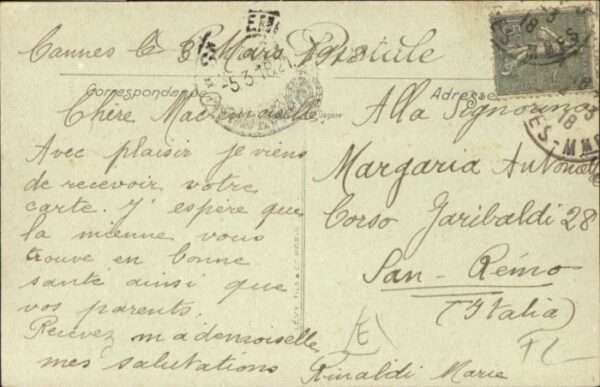 Carte Postale
Cannes le 3 Mars 1918
5.3.18
Correspondance
Adresse
Chère Mademoiselle
Avec plaisir je viens
de recevoir votre
carte. J'espère que
la mienne vous
trouve en bonne
santé ainsi que
vos parents.
Recevez mademoiselle
mes salutations
Rinaldi Marie
Alla Signorina
Margaria
Corso Garibaldi 28
San-Remo
(Italia)
(E)